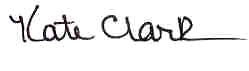 Kate Clark